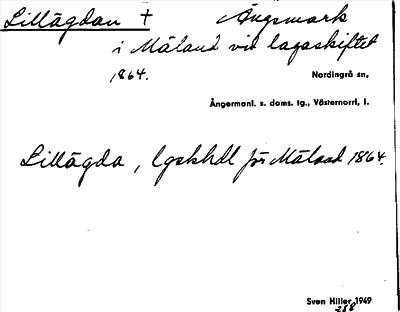 Lillägdan + Ängsmark
i Måland vid lagaskiftet
1864.
Nordingrå sn,
Ångermanl. s. doms. tg., Västernorrl, l.
Lillägda, lgskhdl för Måland 1864.
Sven Hiller 1949
288